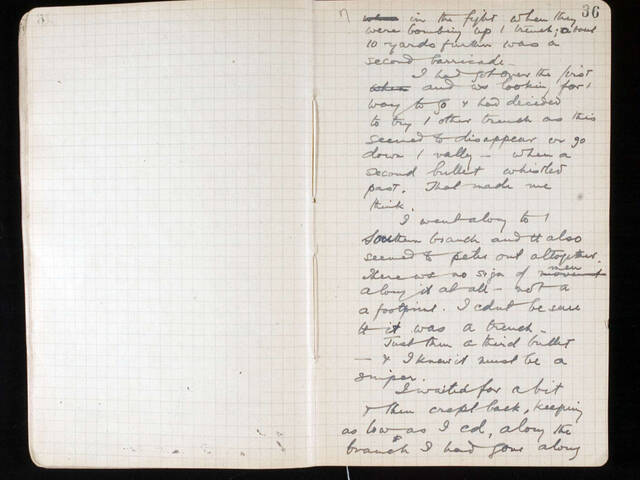 36
in the fight when they
were bombing up / trench; about
10 yards further was a
second barricade.
I had got over the first
when and ws looking for /
way to go & had decided
to try / other trench as this
seemed to disappear or go
down / vally – when a
second bullet whistled
past. That made me
think.
I went along to /
Southern branch and tt also
seemed to peter out altogether.
There ws no sign of movement men
along it at all – not a
footprint. I cdnt be sure
tt it was a trench –
Just then a third bullet
– & I knew it must be a
sniper.
I waited for a bit
& then crept back, keeping
as low as I cd, along the
branch I had gone along